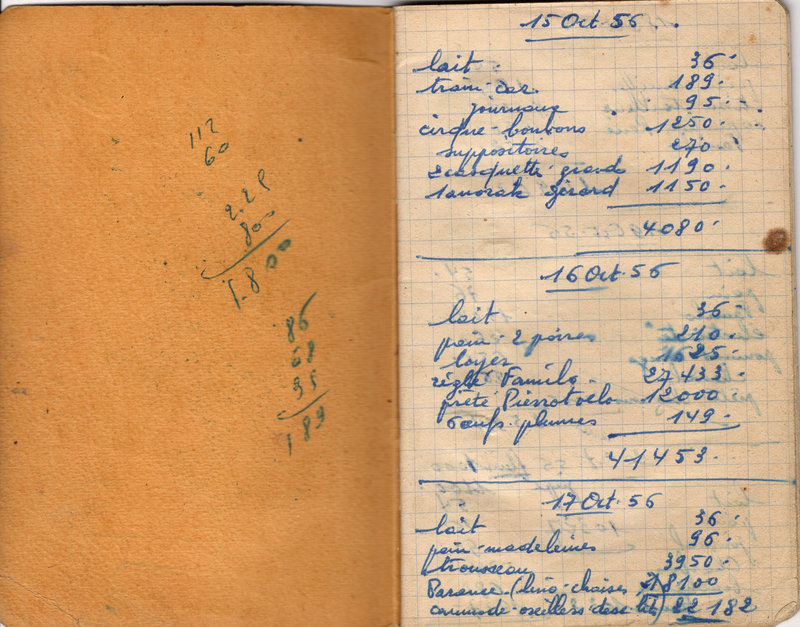 112
60
2.25
800
1.800
86
68
35
189
15 Oct 56
lait 36
train-car 189
journaux 95
cirque-bonbons 1250
suppositoires 270
2 casquette grand 1190
1 anorak Gérard 1150
4080
16 Oct 56
lait 36
pain 2 poires 210
loyer 1625
réglé Familo 27433
prêté Pierrot vélo 12000
6 oeufs plumes 149
41453
17 Oct 56
lait 36
pain-madeleines 96
trousseau 3950
(lino-chaises 18100
commode-oreillers-desc lit) 22182